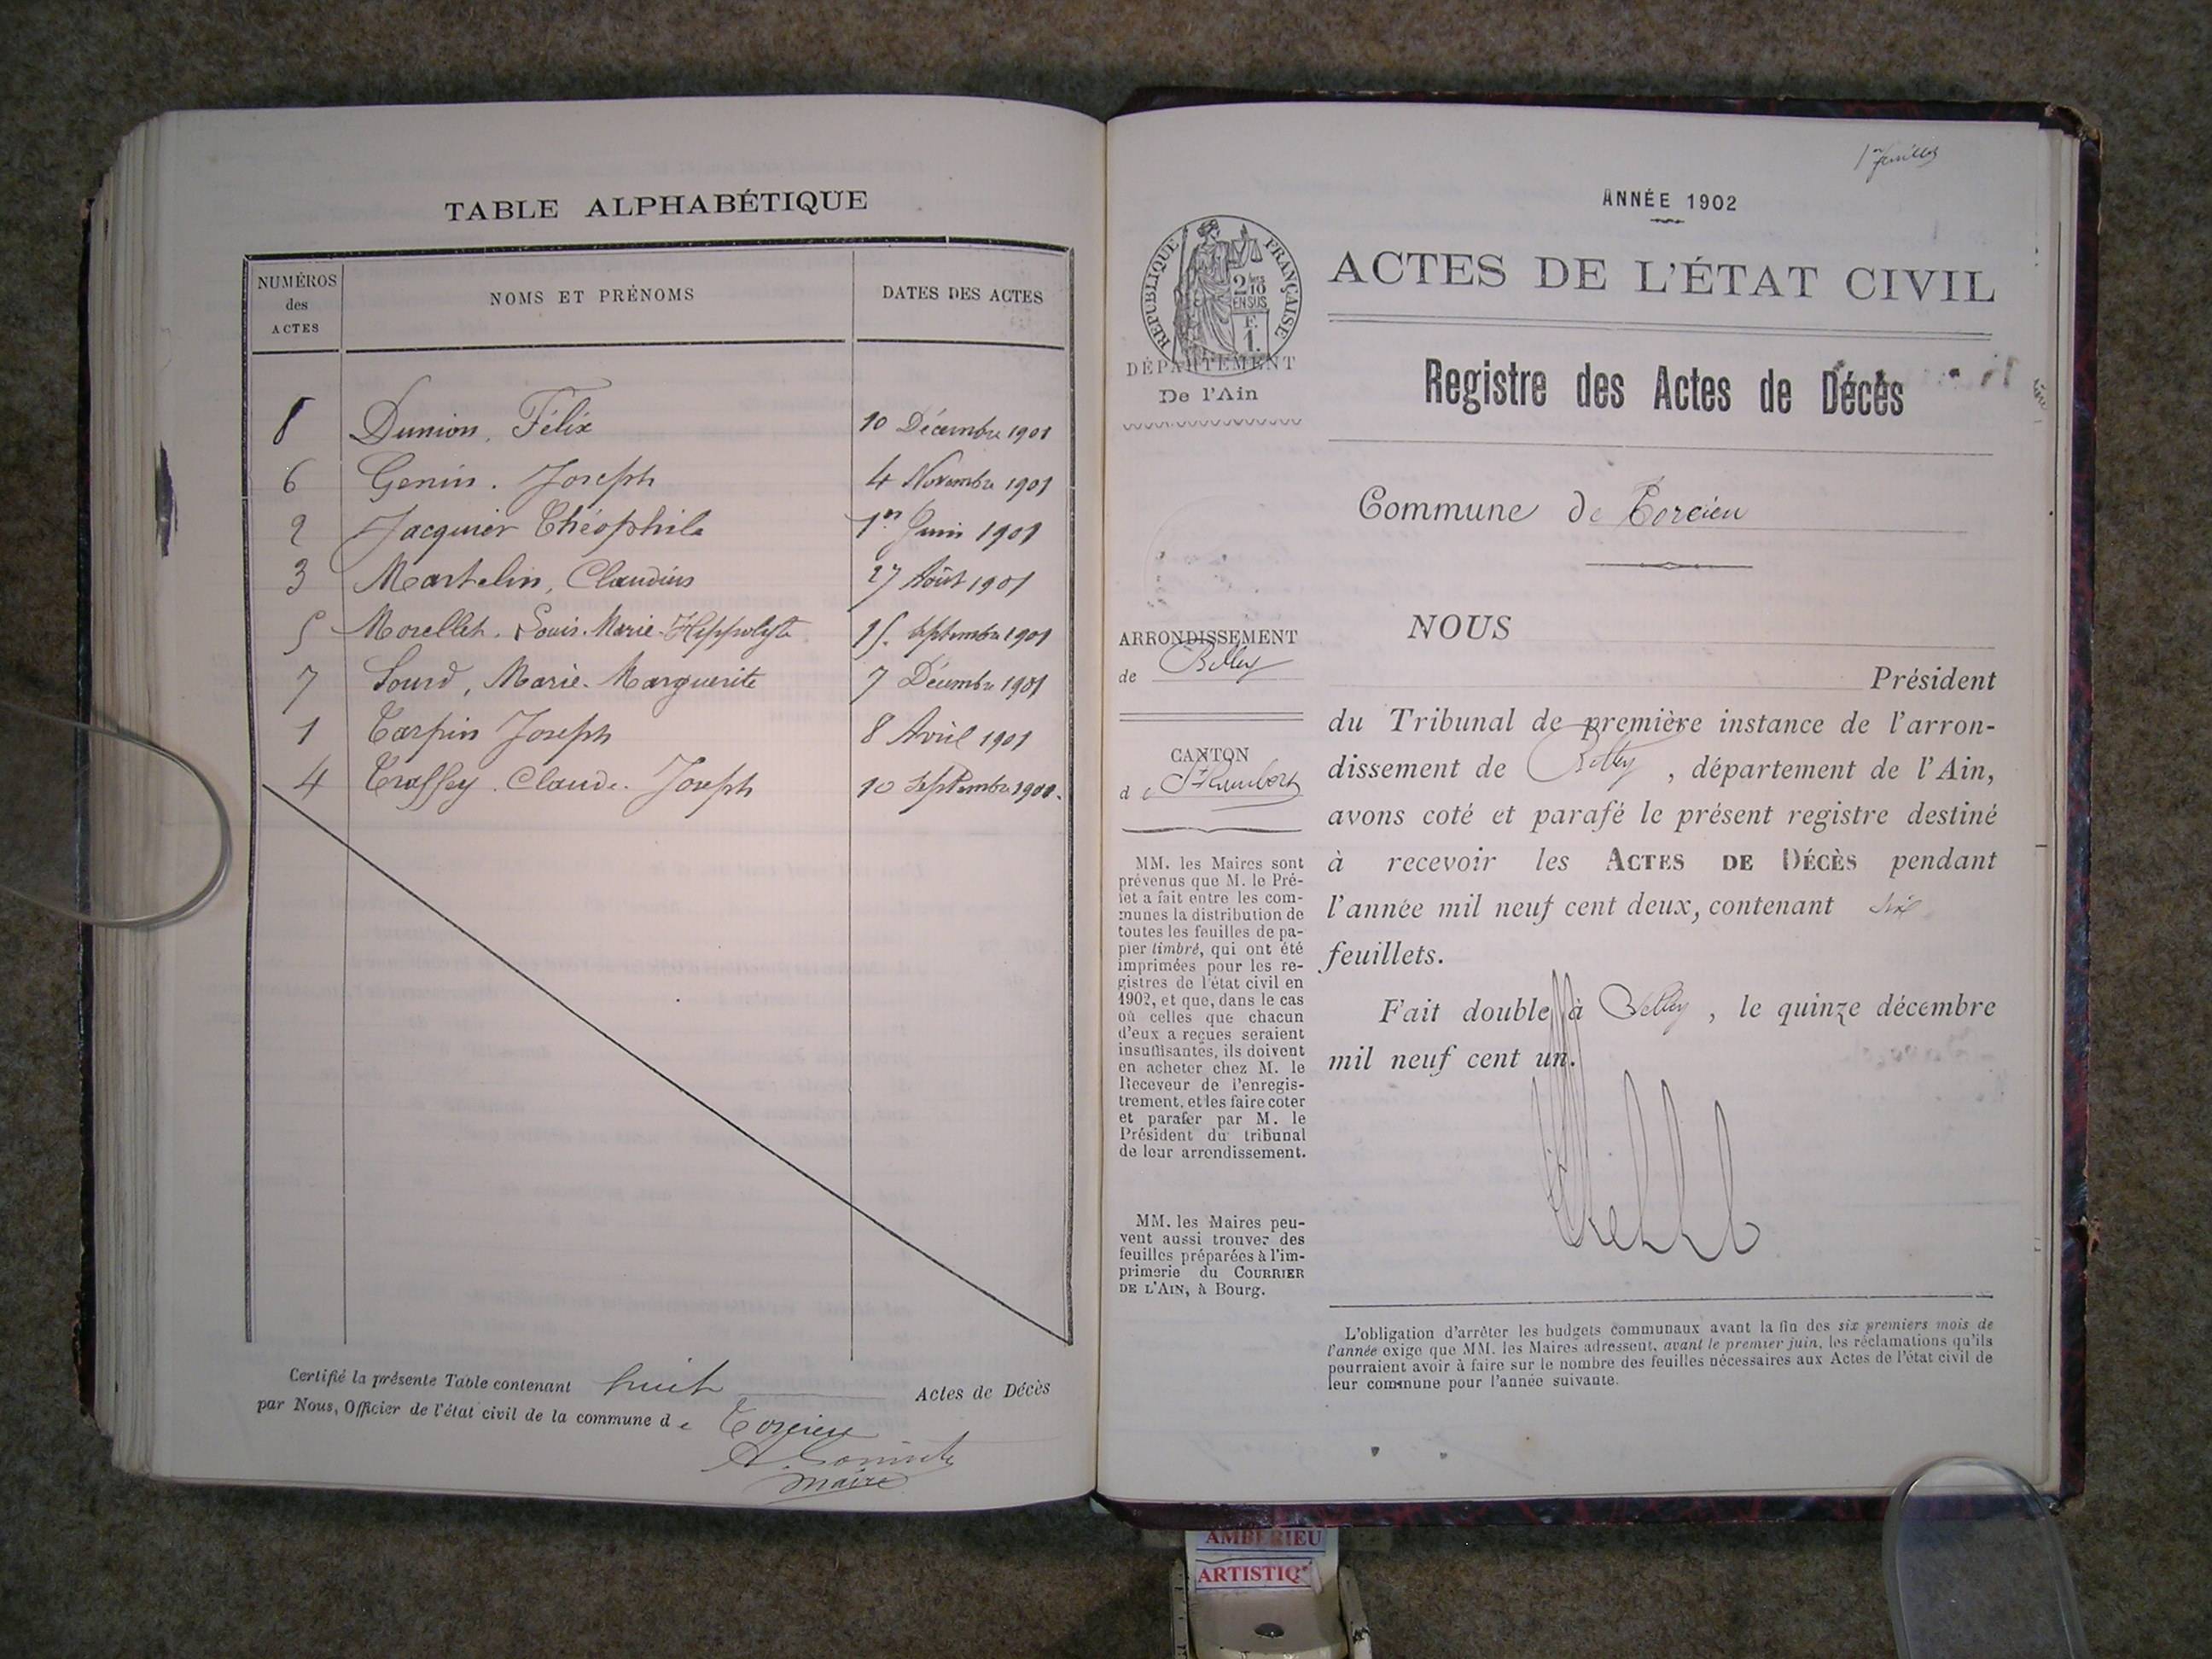 TABLE ALPHABÉTIQUE
NUMÉROS des ACTES
NOMS ET PRÉNOMS
DATES DES ACTES
8 Dunion, Félix 10 Décembre 1901
6 Genin. Joseph 4 Novembre 1901
2 Jacquier Théophile 1er Juin 1901
3 Martelin, Claudius 27 Août 1901
5 Morellet. Louis-Marie-Hippolyte 15. Septembre 1901
7 Sourd, Marie-Marguerite 7 Décembre 1901
1 Tarpin Joseph 8 Avril 1901
4 Traffey. Claude. Joseph 10 Septembre 1901.
Certifié la présente Table contenant huit Actes de Décès
par Nous, Officier de l'état civil de la commune de Torcieu
Maire
1er feuillet
ANNÉE 1902
RÉPUBLIQUE FRANÇAISE
2/10 EN SUS
F. 1.
ACTES DE L'ÉTAT CIVIL
DÉPARTEMENT
De l'Ain
Registre des Actes de Décès
Commune de Torcieu
ARRONDISSEMENT
de Belley
CANTON
de St Rambert
MM. les Maires sont
prévenus que M. le Pré-
fet a fait entre les com-
munes la distribution de
toutes les feuilles de pa-
pier timbré, qui ont été
imprimées pour les re-
gistres de l'état civil en
1902, et que, dans le cas
où celles que chacun
d'eux a reçues seraient
insuffisantes, ils doivent
en acheter chez M. le
Receveur de l'enregis-
trement, et les faire coter
et parafer par M. le
Président du tribunal
de leur arrondissement.
MM. les Maires peu-
vent aussi trouver des
feuilles préparées à l'im-
primerie du COURRIER
DE L'AIN, à Bourg.
NOUS
Président
du Tribunal de première instance de l'arron-
dissement de Belley, département de l'Ain,
avons coté et parafé le présent registre destiné
à recevoir les ACTES DE DÉCÈS pendant
l'année mil neuf cent deux, contenant six
feuillets.
Fait double à Belley, le quinze décembre
mil neuf cent un.
L'obligation d'arrêter les budgets communaux avant la fin des six premiers mois de
l'année exige que MM. les Maires adressent, avant le premier juin, les réclamations qu'ils
pourraient avoir à faire sur le nombre des feuilles nécessaires aux Actes de l'état civil de
leur commune pour l'année suivante.
AMBERIEU
ARTISTIQ